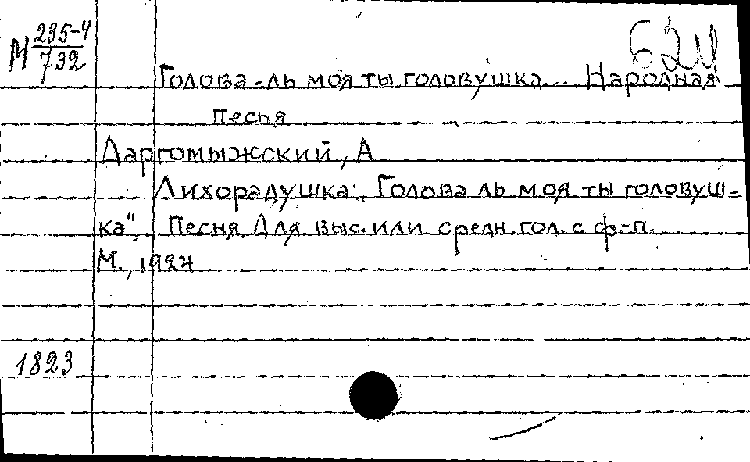 М 235-4
732
Б24
Голова-ль моя ты головушка... Народная
песня
Даргомыжский, А
Лихорадушка. „Голова ль моя ты головуш-
ка". Песня Для выс. или средн. гол. с ф-п.
М., 1927
1823